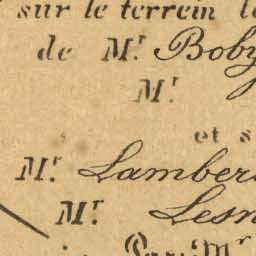 sur le terrein
de Mr. Boby
Mr.
et s
Mr. Lambert
Mr. Lesn
par Mr